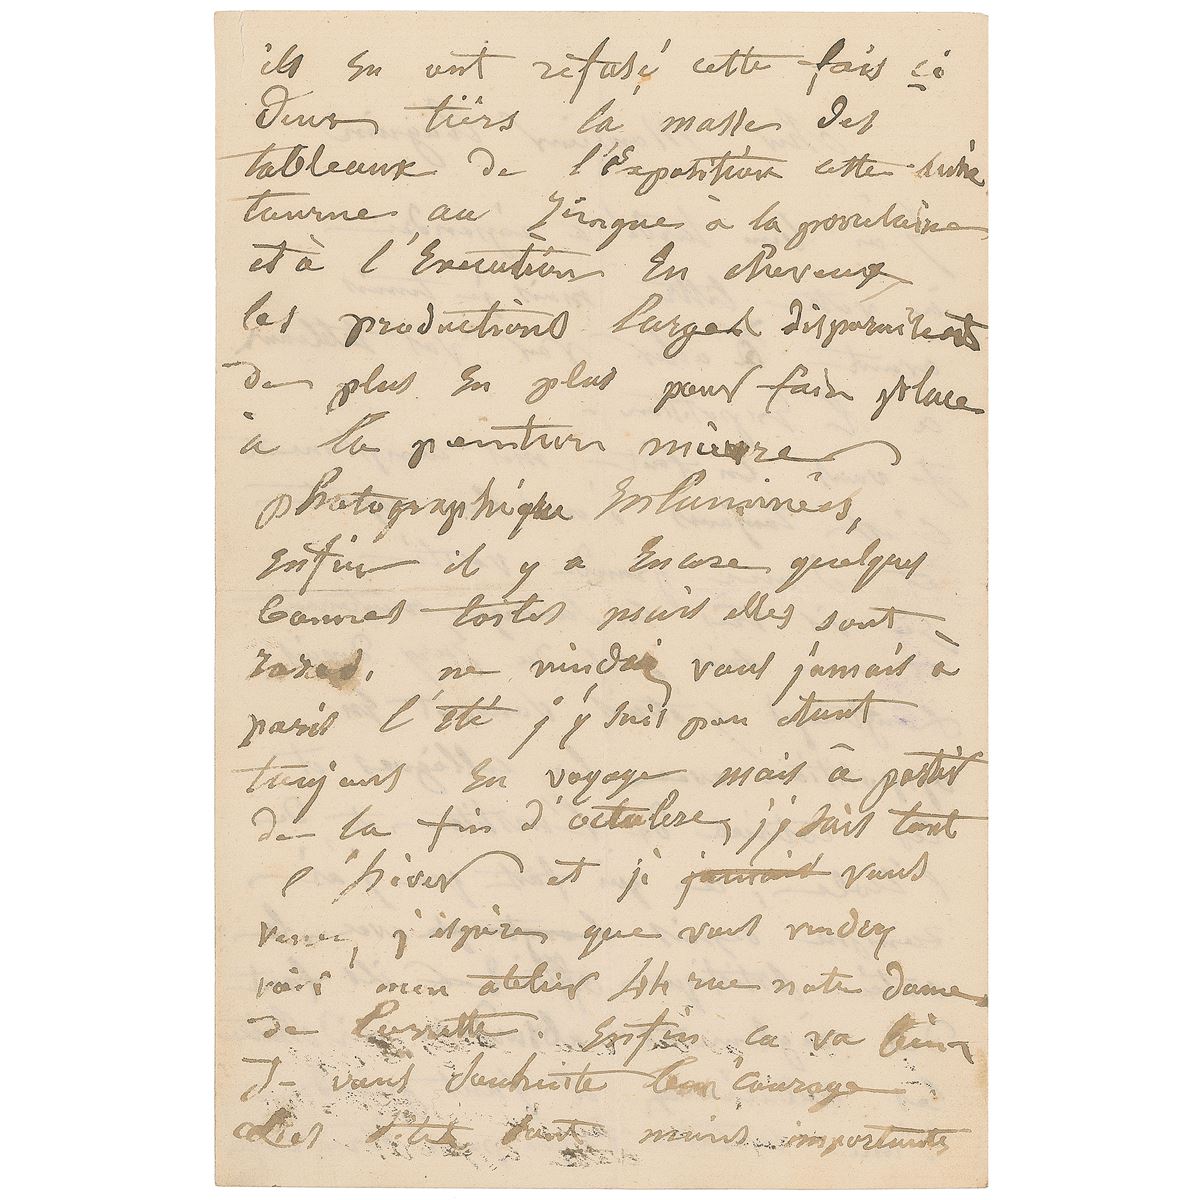 ils en ont refusé cette fois ci
deux tiers la masse des
tableaux de l'Exposition cette
tourne au Zingue à la
et à l'Execution En cheveux,
les productions larges disparaissent
de plus En plus pour fair place
à la peinture mièvre
photographique Enluminées,
Enfin il y a Encore quelques
bonnes toiles mais elles sont
rares. ne viendrez vous jamais à
paris l'été j'y suis peu étant
toujours En voyage mais à partir
de la fin d'octobre, j'y suis tout
l'hiver et si jamais vous
venez, j'espère que vous viendrez
voir mon atelier rue notre dame
de Lorette. Enfin ca va bien
Je vous souhaite bon courage
sont moins importants